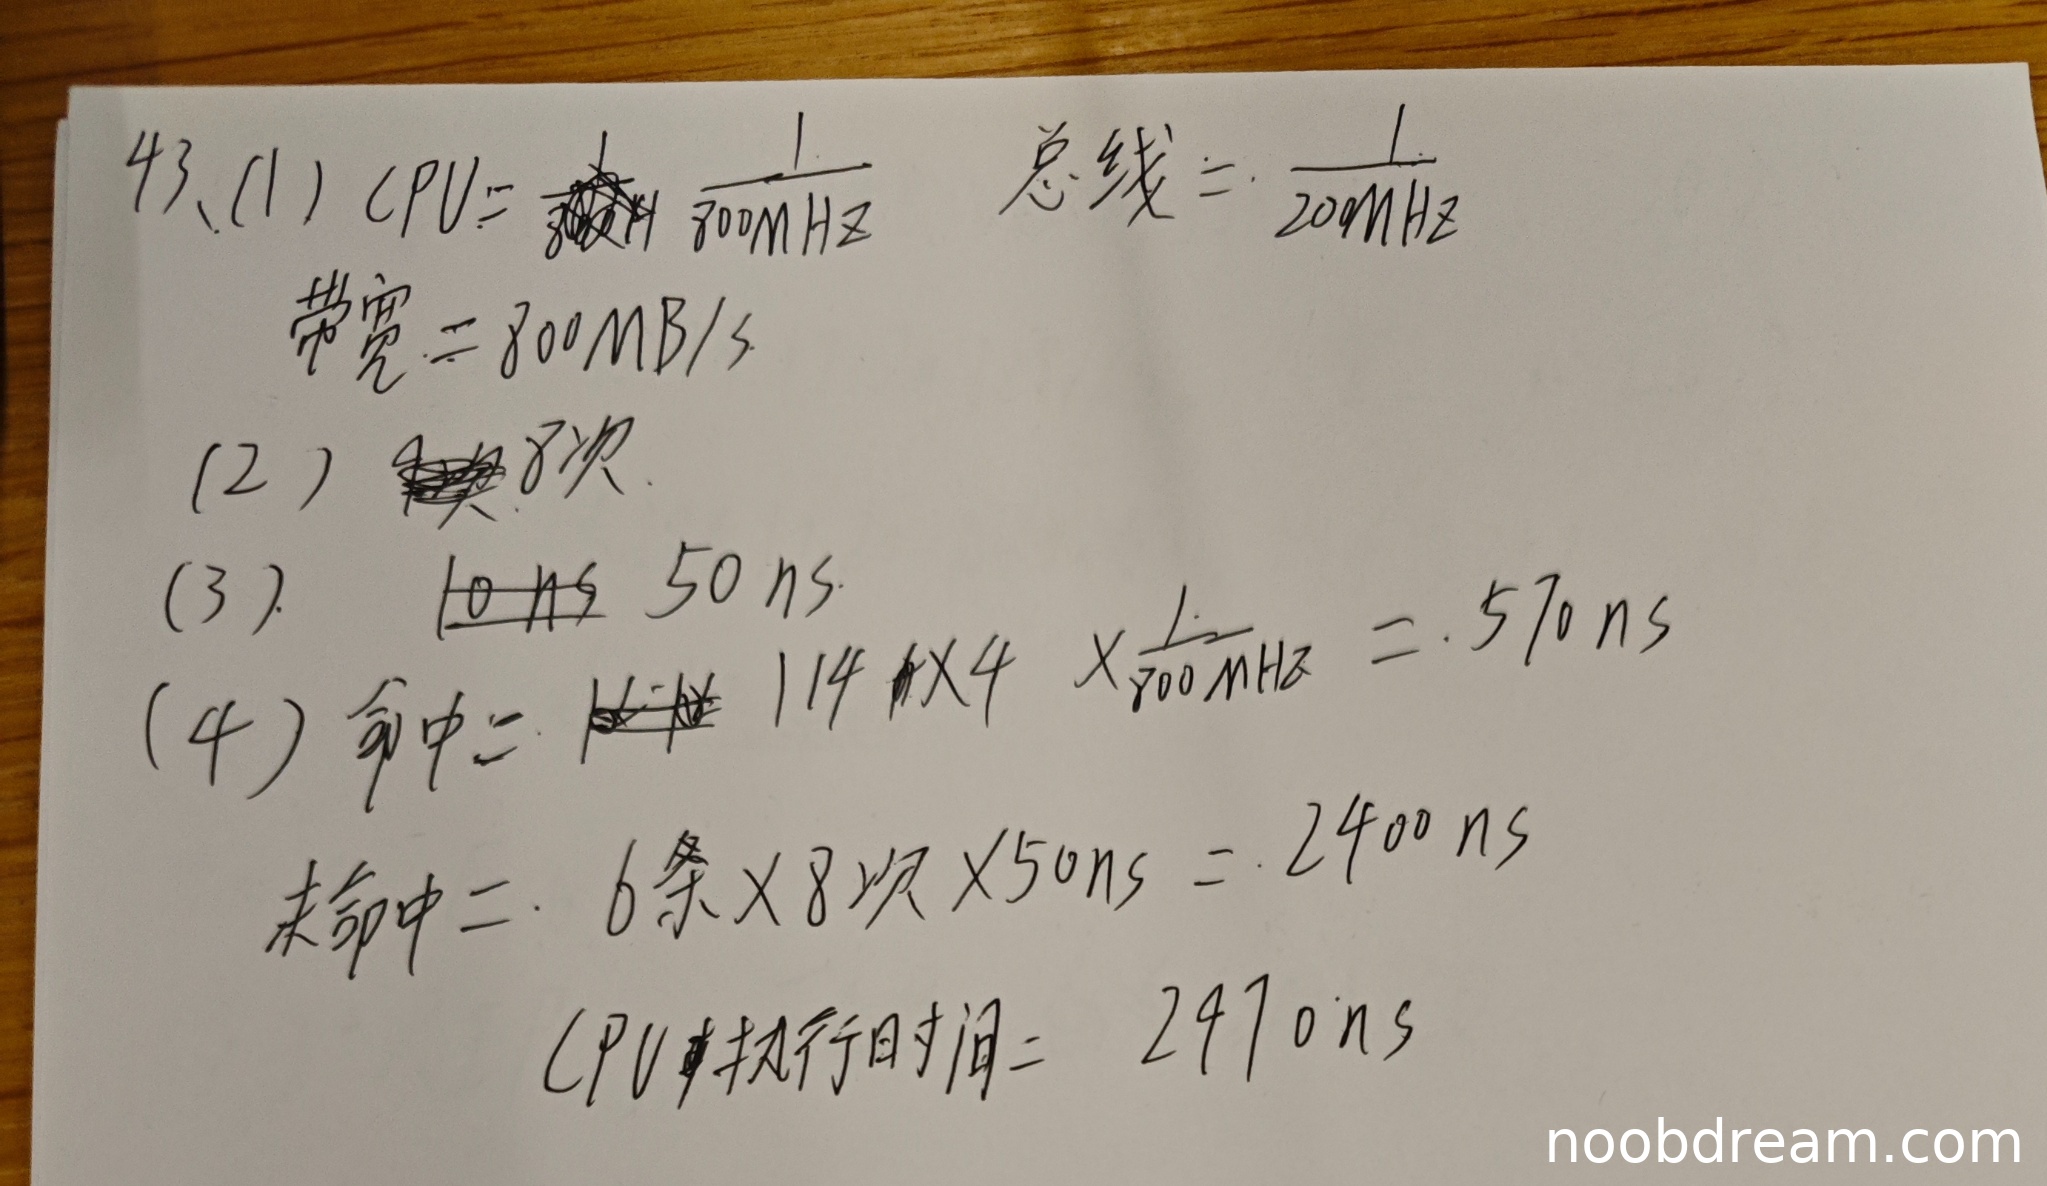 43、(1) CPU = 1/800MHz 总线 = 1/200MHz
带宽 = 800MB/s
(2) 8次.
(3). 10 ns 50 ns.
(4) 命中 = 114 × 4 × 1/800MHz = 570 ns
未命中 = 6条 × 8次 × 50ns = 2400 ns
CPU执行时间 = 2970 ns
noobdream.com